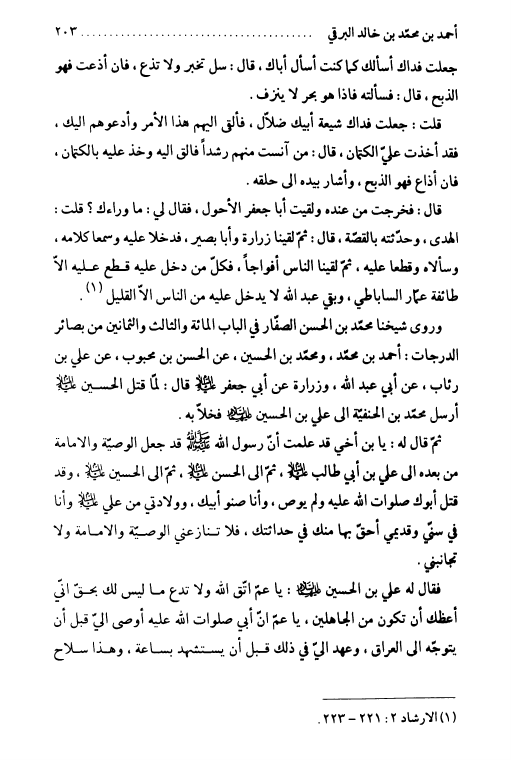 أحمد بن محمّد بن خالد البرقي ........................................ ٢٠٣
جعلت فداك أسألك كما كنت أسأل أباك ، قال : سل تخبر ولا تذع ، فان أذعت فهو
الذبح ، قال : فسألته فاذا هو بحر لا ينزف .
قلت : جعلت فداك شيعة أبيك ضلاّل ، فألقى اليهم هذا الأمر وأدعوهم اليك ،
فقد أخذت عليّ الكتمان ، قال : من آنست منهم رشداً فالق اليه وخذ عليه بالكتمان ،
فان أذاع فهو الذبح ، وأشار بيده الى حلقه .
قال : فخرجت من عنده ولقيت أبا جعفر الأحول ، فقال لي : ما وراءك ؟ قلت :
الهدى ، وحدّثته بالقصّة ، قال : ثمّ لقينا زرارة وأبا بصير ، فدخلا عليه وسمعا كلامه ،
وسألاه وقطعا عليه ، ثمّ لقينا الناس أفواجاً ، فكلّ من دخل عليه قطع عليه الاّ
طائفة عمّار الساباطي ، وبقي عبد الله لا يدخل عليه من الناس الاّ القليل (١) .
وروى شيخنا محمّد بن الحسن الصفّار في الباب المائة والثالث والثمانين من بصائر
الدرجات : أحمد بن محمّد ، ومحمّد بن الحسين ، عن الحسن بن محبوب ، عن علي بن
رئاب ، عن أبي عبد الله ، وزرارة عن أبي جعفر عليه السلام قال : لمّا قتل الحسين عليه السلام
أرسل محمّد بن الحنفيّة الى علي بن الحسين عليهما السلام فخلاّ به .
ثمّ قال له : يا بن أخي قد علمت أنّ رسول الله صلى الله عليه وآله قد جعل الوصيّة والامامة
من بعده الى علي بن أبي طالب عليه السلام ، ثمّ الى الحسن عليه السلام ، ثمّ الى الحسين عليه السلام ، وقد
قتل أبوك صلوات الله عليه ولم يوص ، وأنا صنو أبيك ، وولادتي من علي عليه السلام وأنا
في سنّي وقديمي أحقّ بها منك في حداثتك ، فلا تنازعني الوصيّة والامامة ولا
تجانبني .
فقال له علي بن الحسين عليهما السلام : يا عمّ اتّق الله ولا تدع ما ليس لك بحقّ انّي
أعظك أن تكون من الجاهلين ، يا عمّ انّ أبي صلوات الله عليه أوصى اليّ قبل أن
يتوجّه الى العراق ، وعهد اليّ في ذلك قبل أن يستشهد بساعة ، وهذا سلاح
(١) الارشاد ٢ : ٢٢١ – ٢٢٣ .